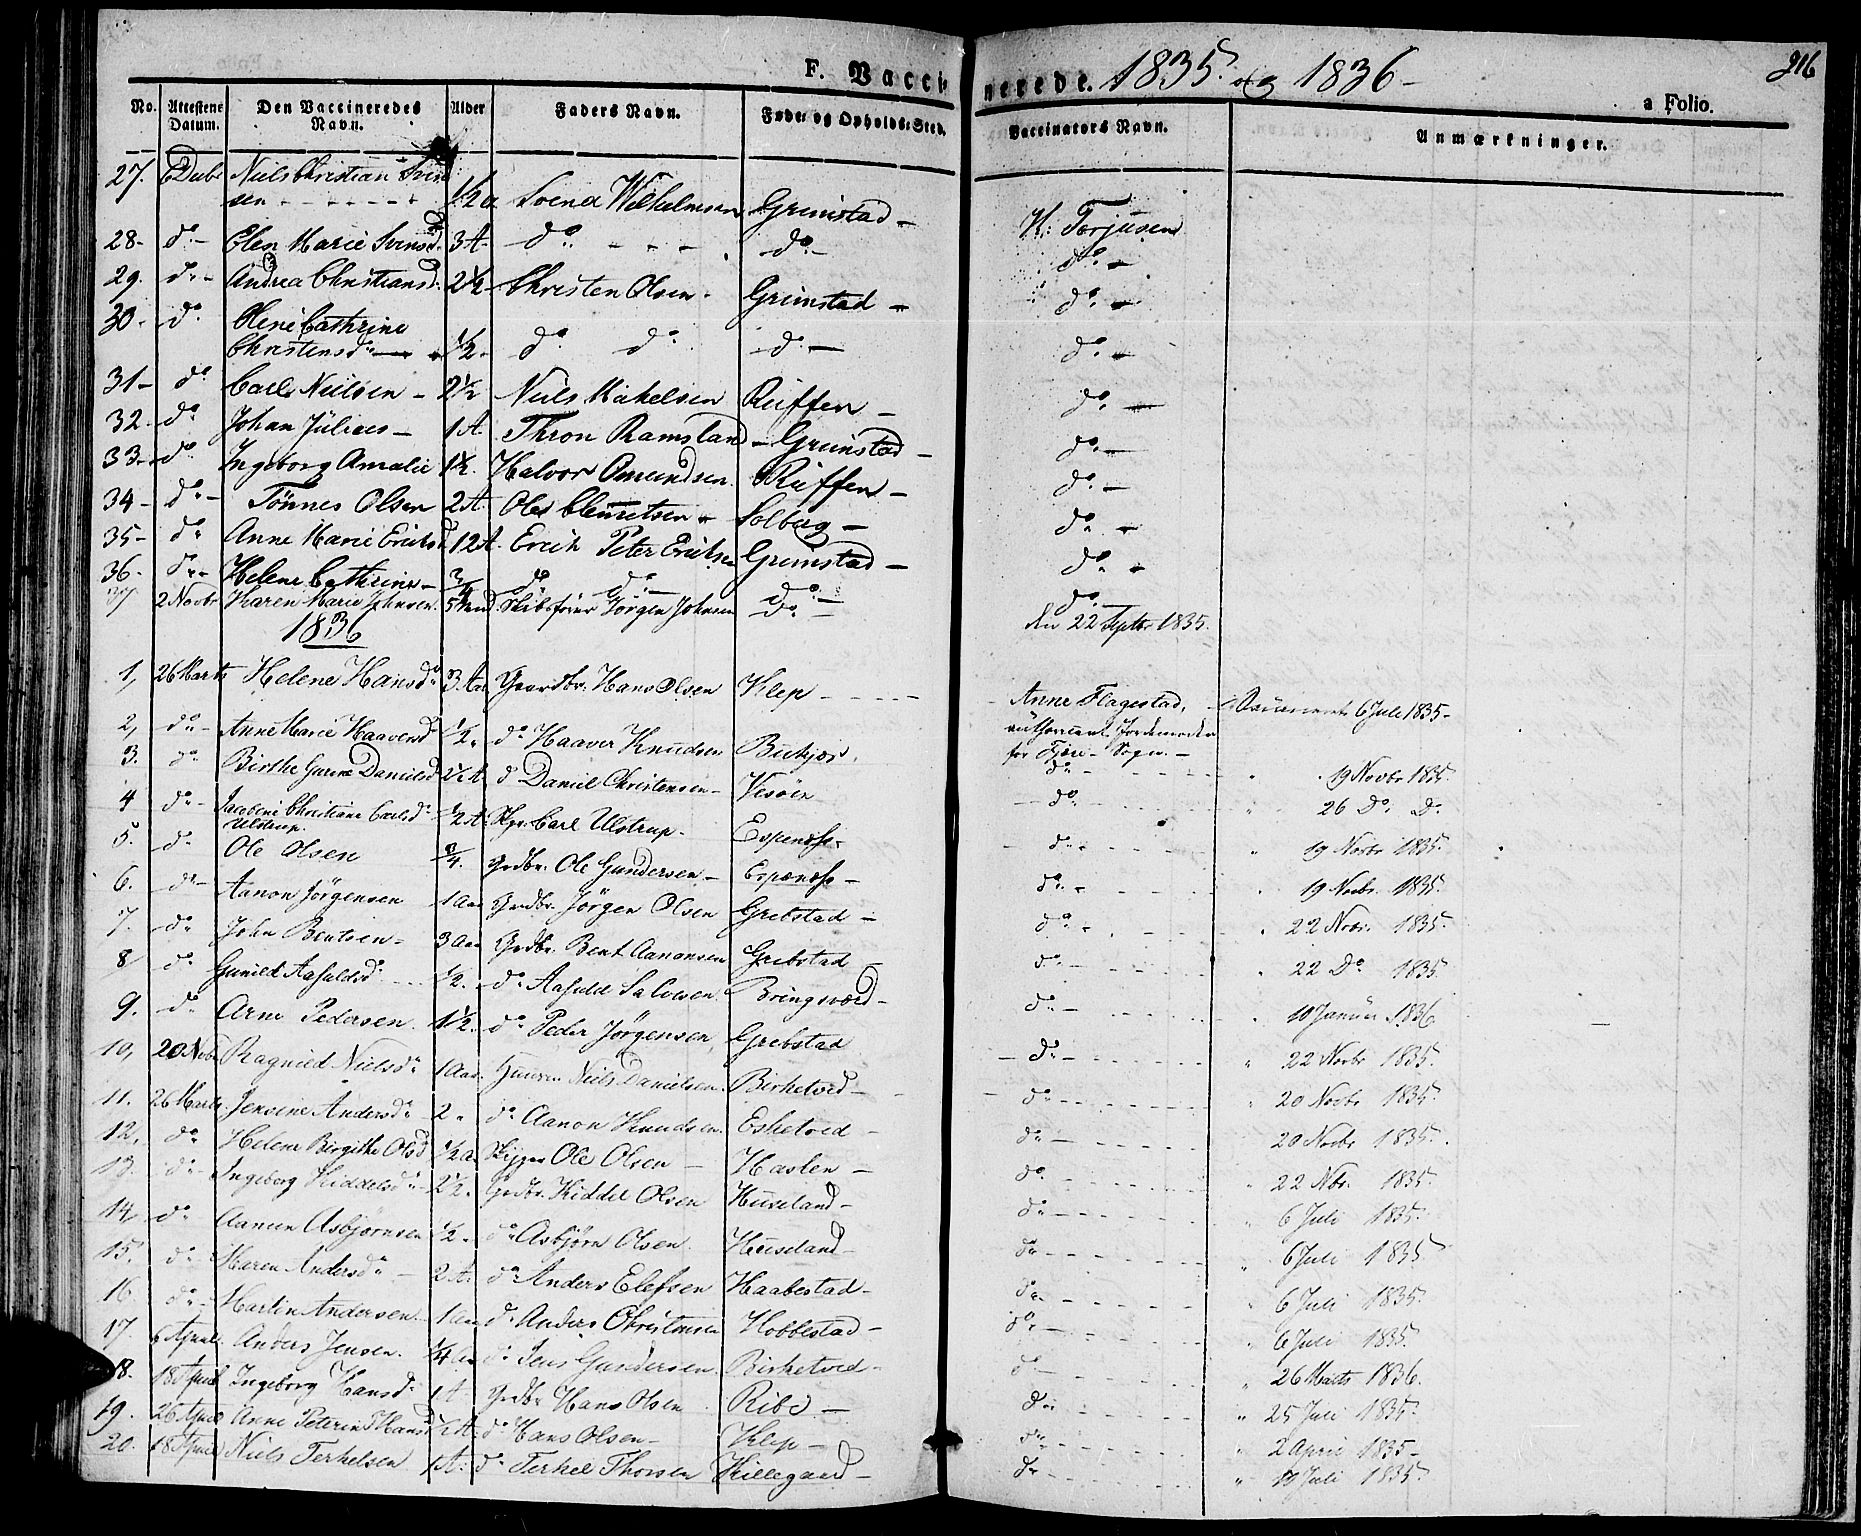 F. Vaccinerede. 1835. og 1836 -
216
a Folio.
No. Attestens Datum. Den Vaccineredes Navn. Alder Faders Navn. Føde- og Opholds-Sted. Vaccinators Navn. Anmærkninger.
27. Niels Christian Svend
sen - - - - - - 1/2 a Svend Wilhelmsen Grimstad - K: Torjusen
28 - do - Elen Marie Svensd. 3 A. do - - - do - do -
29. do - Andrea Christiansd. 2 1/2 - Christen Olsen - Grimstad - do -
30 - do Oleni Cathrine
Christensdr - 1/2 - do do do - do -
31 - do Carl Nielsen - 2 1/2 Niels Mikelsen Rüffen - do -
32. do Johan Jülius - 1 A. Thron Ramsland - Grimstad - do -
33 - do Ingeborg Amalie 1 1/2. Halvor Amundsen. Rüffen - do -
34 - do - Tönnes Olsen 2 A. Ole Clemetsen - Solberg - do -
35 - do Anne Marie Ericksd 12 A. Erich Peter Erichsen Grimstad - do -
36 - do - Helene Cathrine - 3/4 do do - do - do -
37 2 Novbr Karen Marie Johnsen. Skibsfører Jørgen Johnsen Do - den 22 Septbr 1835.
1836
1, 26 Marts Helene Hansdr 3 Aar Gaardbr. Hans Olsen Klep - - - - Anne Flagestad, 6 Juli 1835 -
2, do - Anne Marie Haavorsd 1/2. do Haavor Knudsen Birkjær. Jordemoder
for Fjære Sogn. -
3. do Birthe Gurine Danielsd 2 1/2 A. d Daniel Christensen - Vesöen do - - - - 19 Novbr 1835.
4 do - Jacobine Christiane Carlsdr
Ulstrup. 1/2 A. Skpr. Carl Ulstrup. Espenæss. - do - - - - 26 Do Do
5. do Ole Olsen 3/4. Grdbr. Ole Gundersen - Espenæss - - do - - - - 19 Novbr 1835.
6. do - Aanon Jörgensen 1 Aar Grdbr. Jörgen Olsen Grebstad - do - - - - 19 Novbr. 1835.
7. do John Bentsen - 3 Aar Grdbr. Bent Aanonsen Grebstad do - - - - 22 Novbr. 1835.
8 do Gunild Aasuldsdr 1/2. do Aasuld Salvesen Bringsværd - do - - - - 22 Do 1835.
9. do Arne Pedersen. 1 1/2. do Peder Jörgensen Grebstad do - - - - 10 Januar 1836
10, 20 Novbr Ragnild Nielsdr 1 Aar. Niels Danielsen. Birketved - - do - - - - 22 Novbr 1835.
11. 26 Marts. Jensine Andersdr 2. do Aanon Knudsen. Esketved - do - - - - 20 Novbr 1835.
12. do Helene Birgithe Olsd 1/2 a. Skipper Ole Olsen - Haslen - do - - - - 20 Novbr 1835.
13. do - Ingeborg Kiddelsdr - 2 1/2. Grdbr. Kiddel Olsen Hüseland - do - - - - 22 Nbr. 1835.
14, do Asbjörnsen 1/2. do Asbjörn Olsen. Hüseland - do - - - - 6 Juli 1835.
15. do Maren Andersdr - 2 A. do Anders Elefsen Haabestad - do - - - - 6 Juli 1835
16. do - Martin Andersen - 1 Aar do Anders Christensen Hobbestad - do - - - - 6 Juli 1835.
17. 6 April. Anders Jensen. 1/4 Aar do Jens Gundersen. Birketved - do - - - - 6 Juli 1835.
18. 18 April Ingeborg Hansdr 1 A. Grdbr Hans Olsen Ribe - do - - - - 26 Marts 1836.
19. 26 April Anne Peterine Hansd 1/2 A. do Hans Olsen - Klep - do - - - - 25 Juli 1835.
20. 18 April Niels Terkelsen 1 A. do Terkel Thorsen Killegaard - do - - - - 2 April 1835 -
do - - - - 19 Juli 1835.